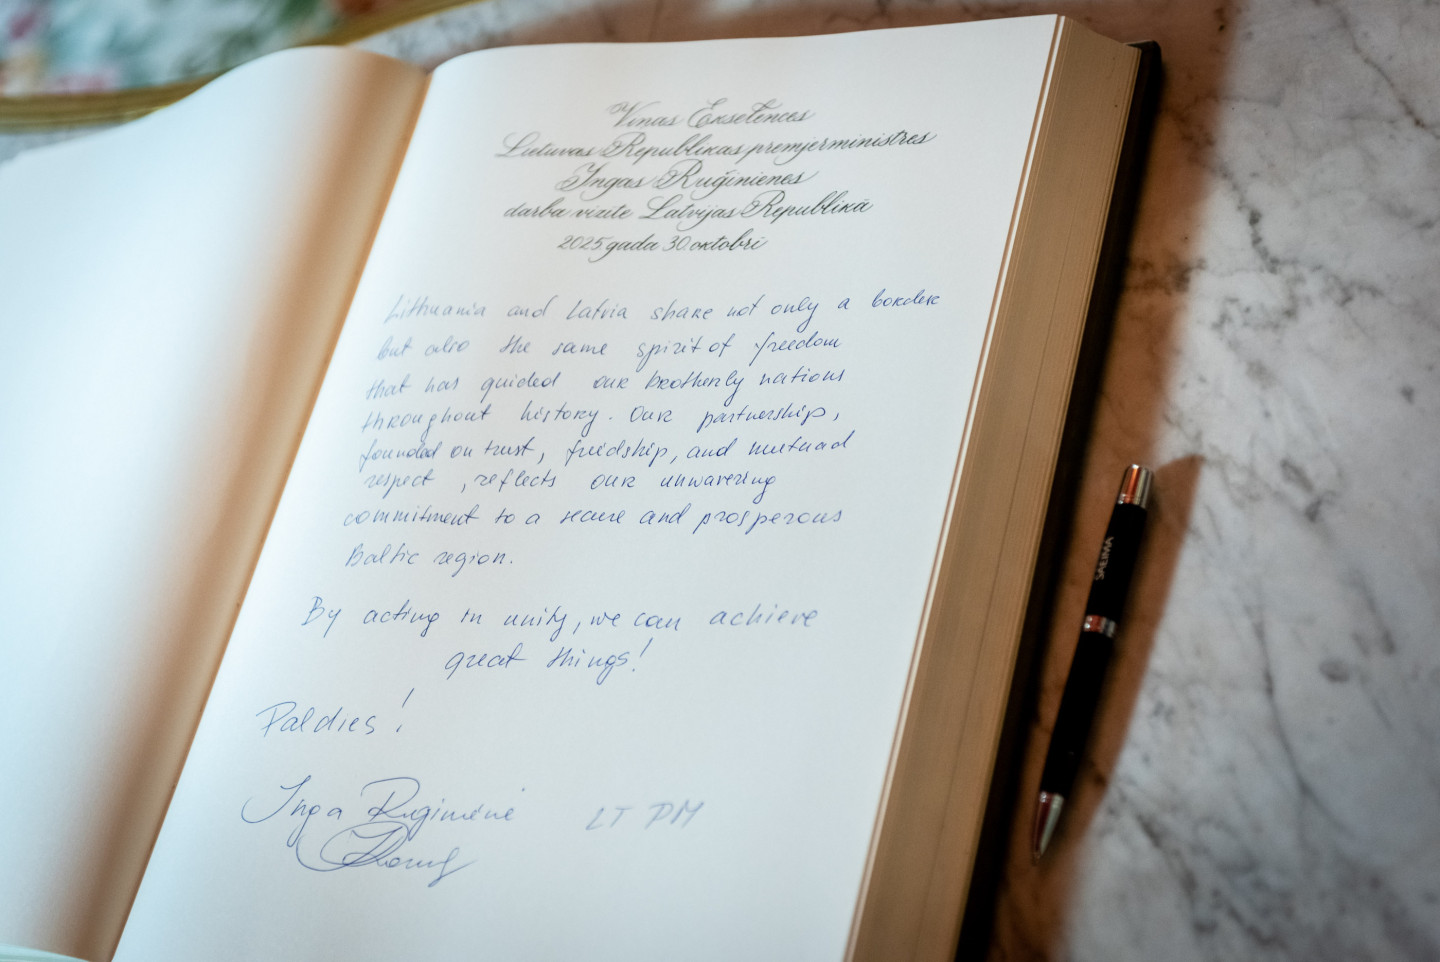 Viņas Ekselences
Lietuvas Republikas premjerministres
Ingas Ruginienes
darba vizīte Latvijas Republikā
2025. gada 30. oktobrī
Lithuania and Latvia share not only a border
but also the same spirit of freedom
that has guided our brotherly nations
throughout history. Our partnership,
founded on trust, friedship, and mutual
respect, reflects our unwavering
commitment to a secure and prosperous
Baltic region.
By acting in unity, we can achieve
great things!
Paldies!
Inga Ruginienė LT PM
SAEIMA